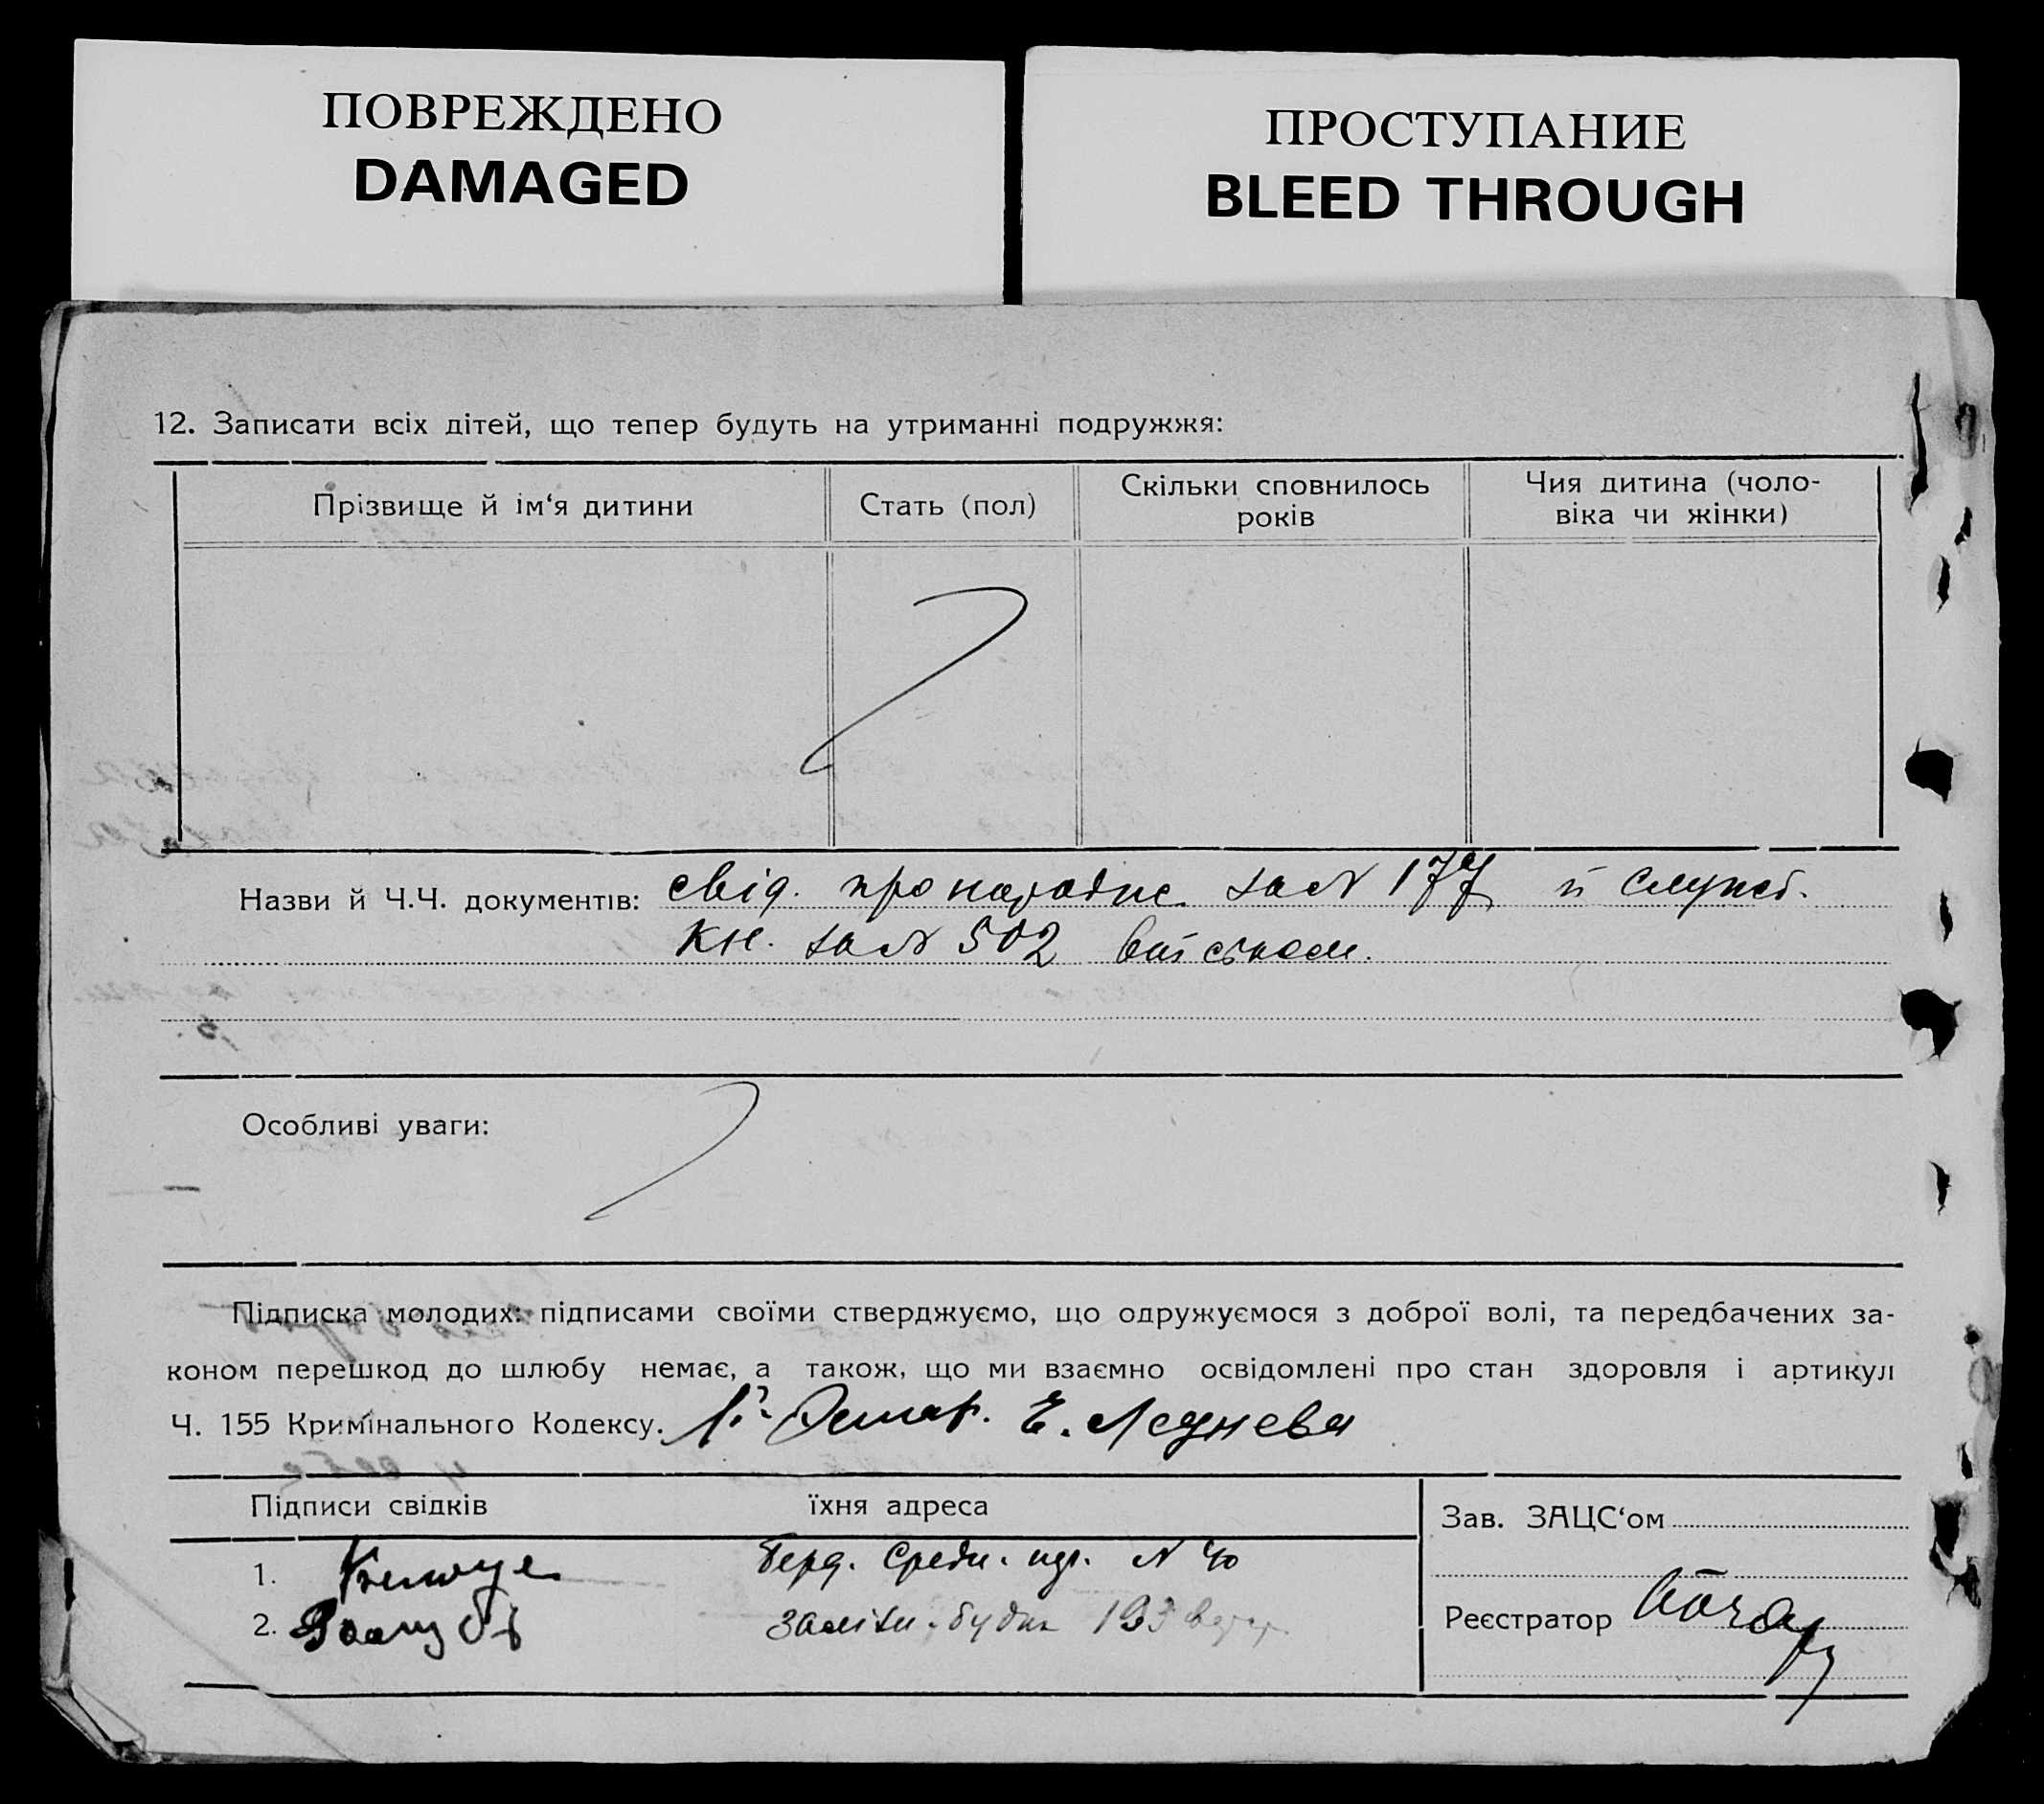 ПОВРЕЖДЕНО
DAMAGED
ПРОСТУПАНИЕ
BLEED THROUGH
12. Записати всіх дітей, що тепер будуть на утриманні подружжя:
Прізвище й ім‘я дитини
Стать (пол)
Скільки сповнилось
років
Чия дитина (чоло-
віка чи жінки)
Назви й Ч.Ч. документів: свід. про народже за N 177 й служб.
кн. за N 502 військом.
Особливі уваги:
Підписка молодих: підписами своїми стверджуємо, що одружуємося з доброї волі, та передбачених за-
коном перешкод до шлюбу немає, а також, що ми взаємно освідомлені про стан здоровля і артикул
Ч. 155 Кримінального Кодексу. Е. Леднева
Підписи свідків
їхня адреса
Зав. ЗАЦС‘ом
1.
Берд. Средн. N 40
2.
залізн. будин 193
Реєстратор